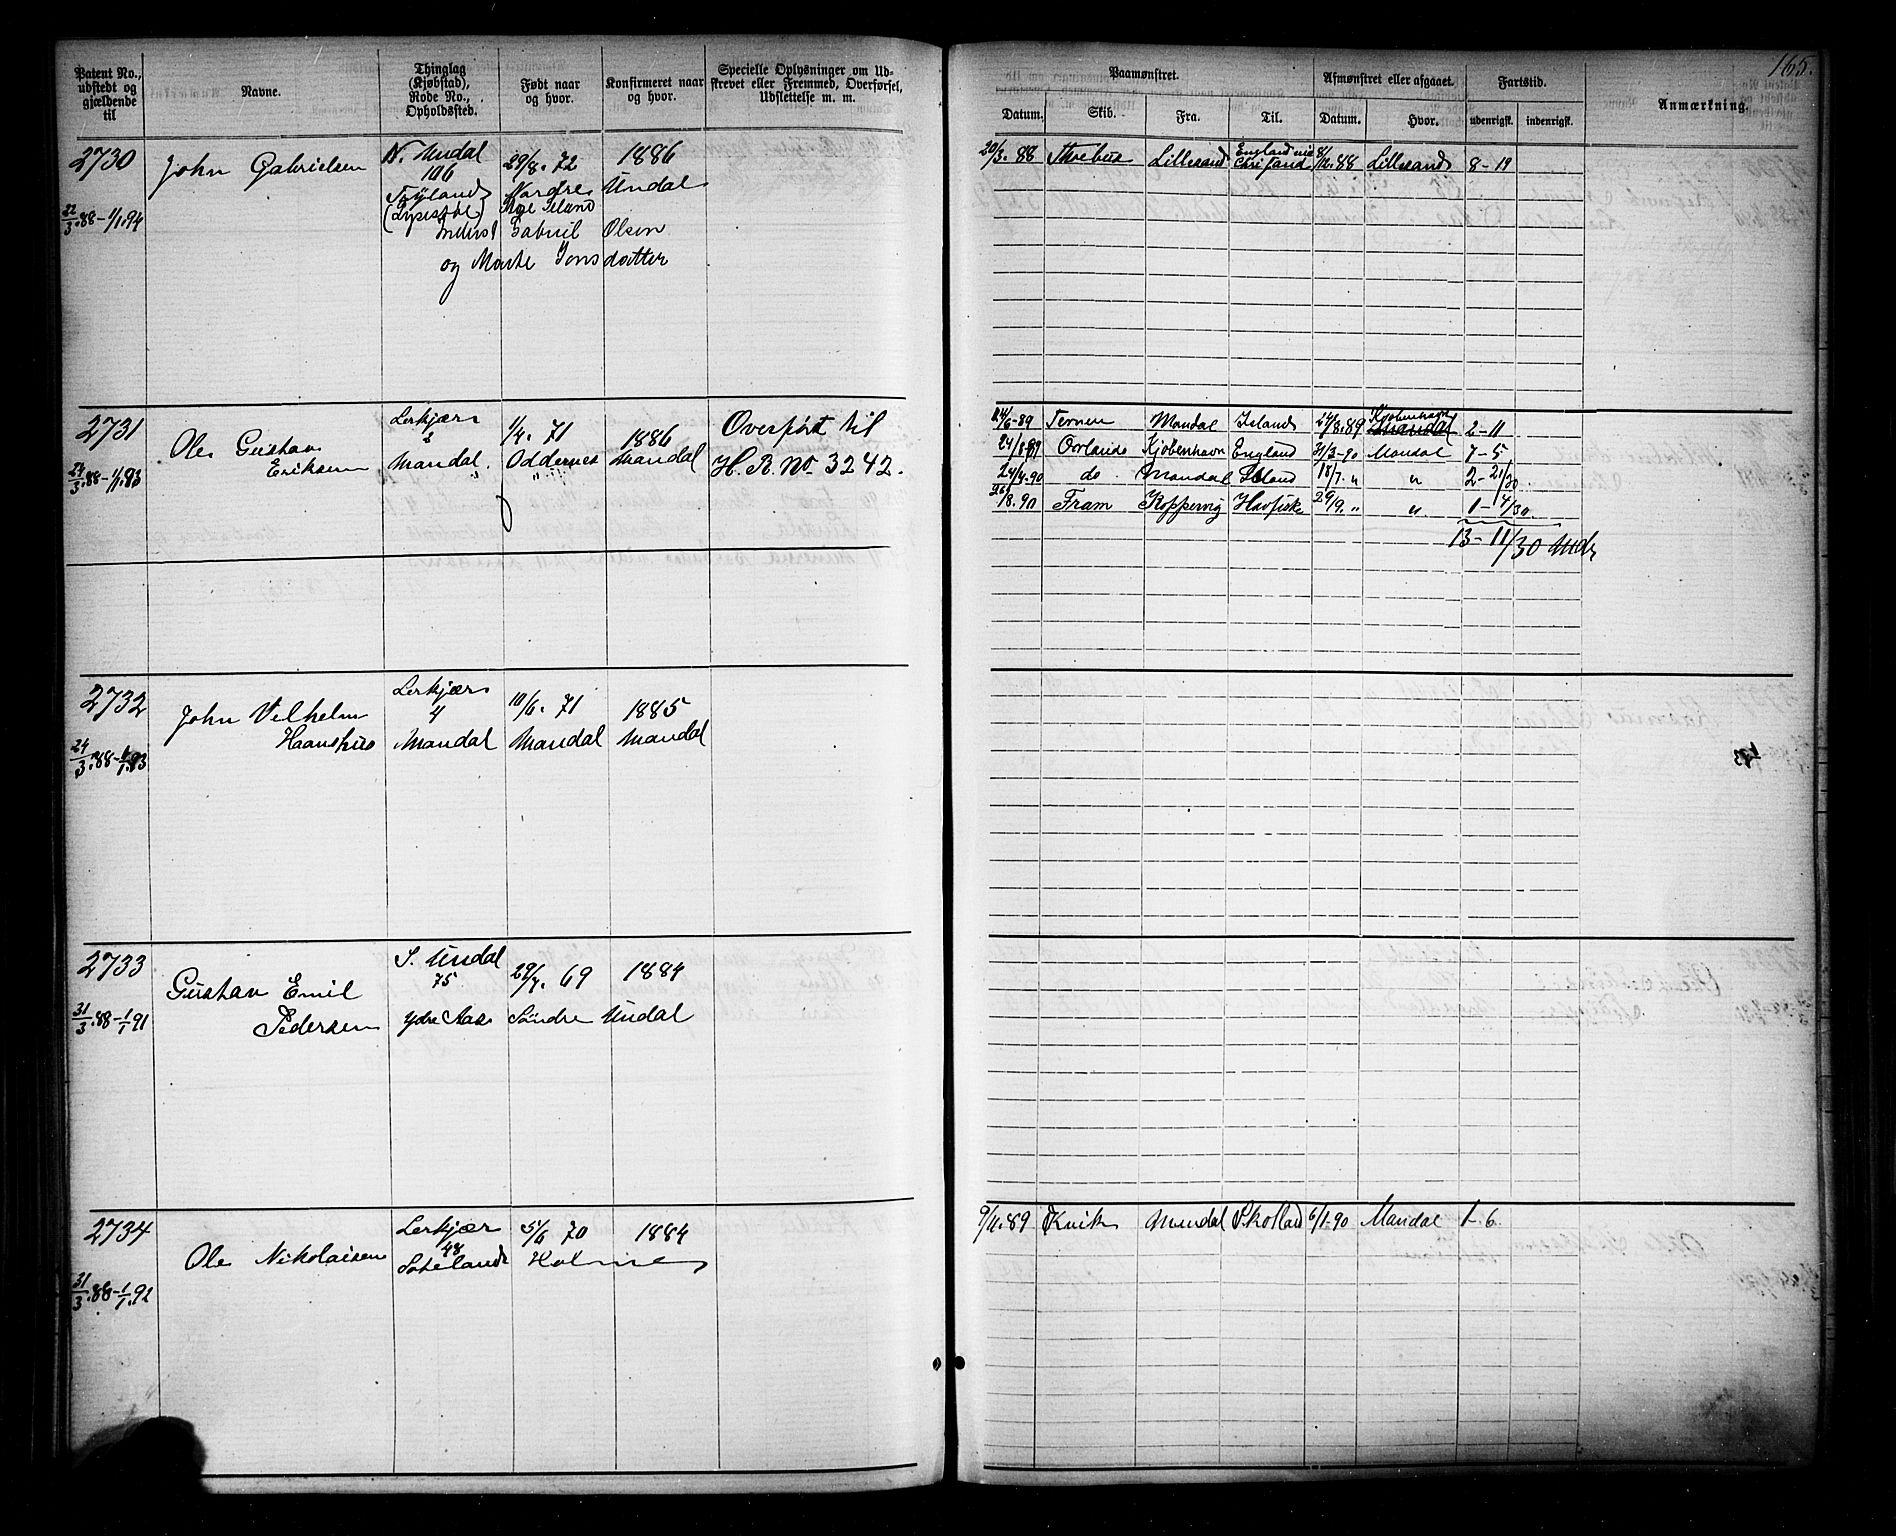 165.
Patent No., udstedt og gjældende til
Navne.
Thinglag (Kjøbstad), Rode No., Opholdssted.
Født naar og hvor.
Konfirmeret naar og hvor.
Specielle Oplysninger om Udskrevet eller Fremmed, Overførsel, Udslettelse m. m.
Paamønstret.
Afmønstret eller afgaaet.
Fartstid.
Anmærkning.
Datum. Skib. Fra. Til. Datum. Hvor. udenrigsk. indenrigsk.
2730
22/3.88-1/1.94
John Gabrielsen
N. Undal
106
29/8.72
Nordre Undal
1886
Gabriel Olsen
og Marte Jonsdatter
20/3.88 Lillesand 88 Lillesand 8-19
2731
24/3.88-1/1.93
Ole Gustav
Eriksen
Lerkjær
Mandal.
1/4.71
Oddernes
1886
Mandal
Overført til
H.R. No 3242.
Ternen Mandal Island 24/8.89 Kjøbenhavn Mandal 2-11
Kjøbenhavn England 31/3-90 Mandal 7-5
24/4.90 do. Mandal Island 18/7. " " 2-21/30
26/8.90 Fram Koppervig Havfiske 29/9. " " 1-4/30.
13-11/30 Mdr
2732
24/3.88-1/1.93
John Vilhelm
Haanshus
Lerkjær
4
Mandal
10/6.71
Mandal
1885
Mandal
2733
31/3.88-1/1.91
Gustav Emil
Pedersen
S. Undal
75
ydre Aas
69
Søndre Undal
1884
2734
31/3.88-1/1.92
Ole Nikolaisen
Lerkjær
48
70
Holme
1884
9/11.89 Kvik Mandal Skotland 6/1.90 Mandal 1-6.